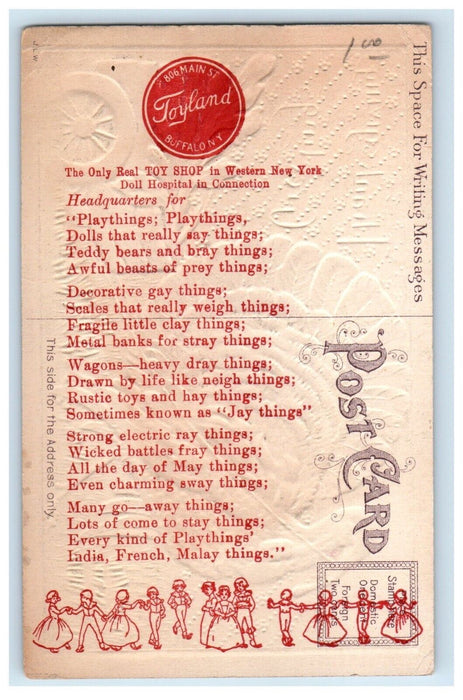 J.L.W.
1 00
806 MAIN ST
Toyland
BUFFALO N.Y.
The Only Real TOY SHOP in Western New York
Doll Hospital in Connection
Headquarters for
"Playthings; Playthings,
Dolls that really say things;
Teddy bears and bray things;
Awful beasts of prey things;
Decorative gay things;
Scales that really weigh things;
Fragile little clay things;
Metal banks for stray things;
Wagons—heavy dray things;
Drawn by life like neigh things;
Rustic toys and hay things;
Sometimes known as "Jay things"
Strong electric ray things;
Wicked battles fray things;
All the day of May things;
Even charming sway things;
Many go—away things;
Lots of come to stay things;
Every kind of Playthings'
India, French, Malay things."
This Space For Writing Messages
POST CARD
This side for the Address only.
Stamp
Domestic
Foreign